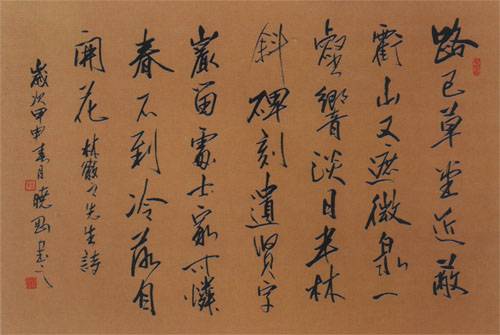 路已草堂近蔽
虧山又遮微泉一
壑響淡日半林
斜碑刻遺賢字
巖留處士家可憐
春不到冷落自
開花
林 之先生詩
歲次甲申春月曉 書